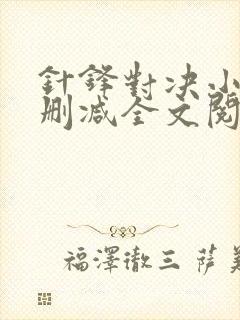 針鋒對决小
删減全文閱
福澤徹三 薩